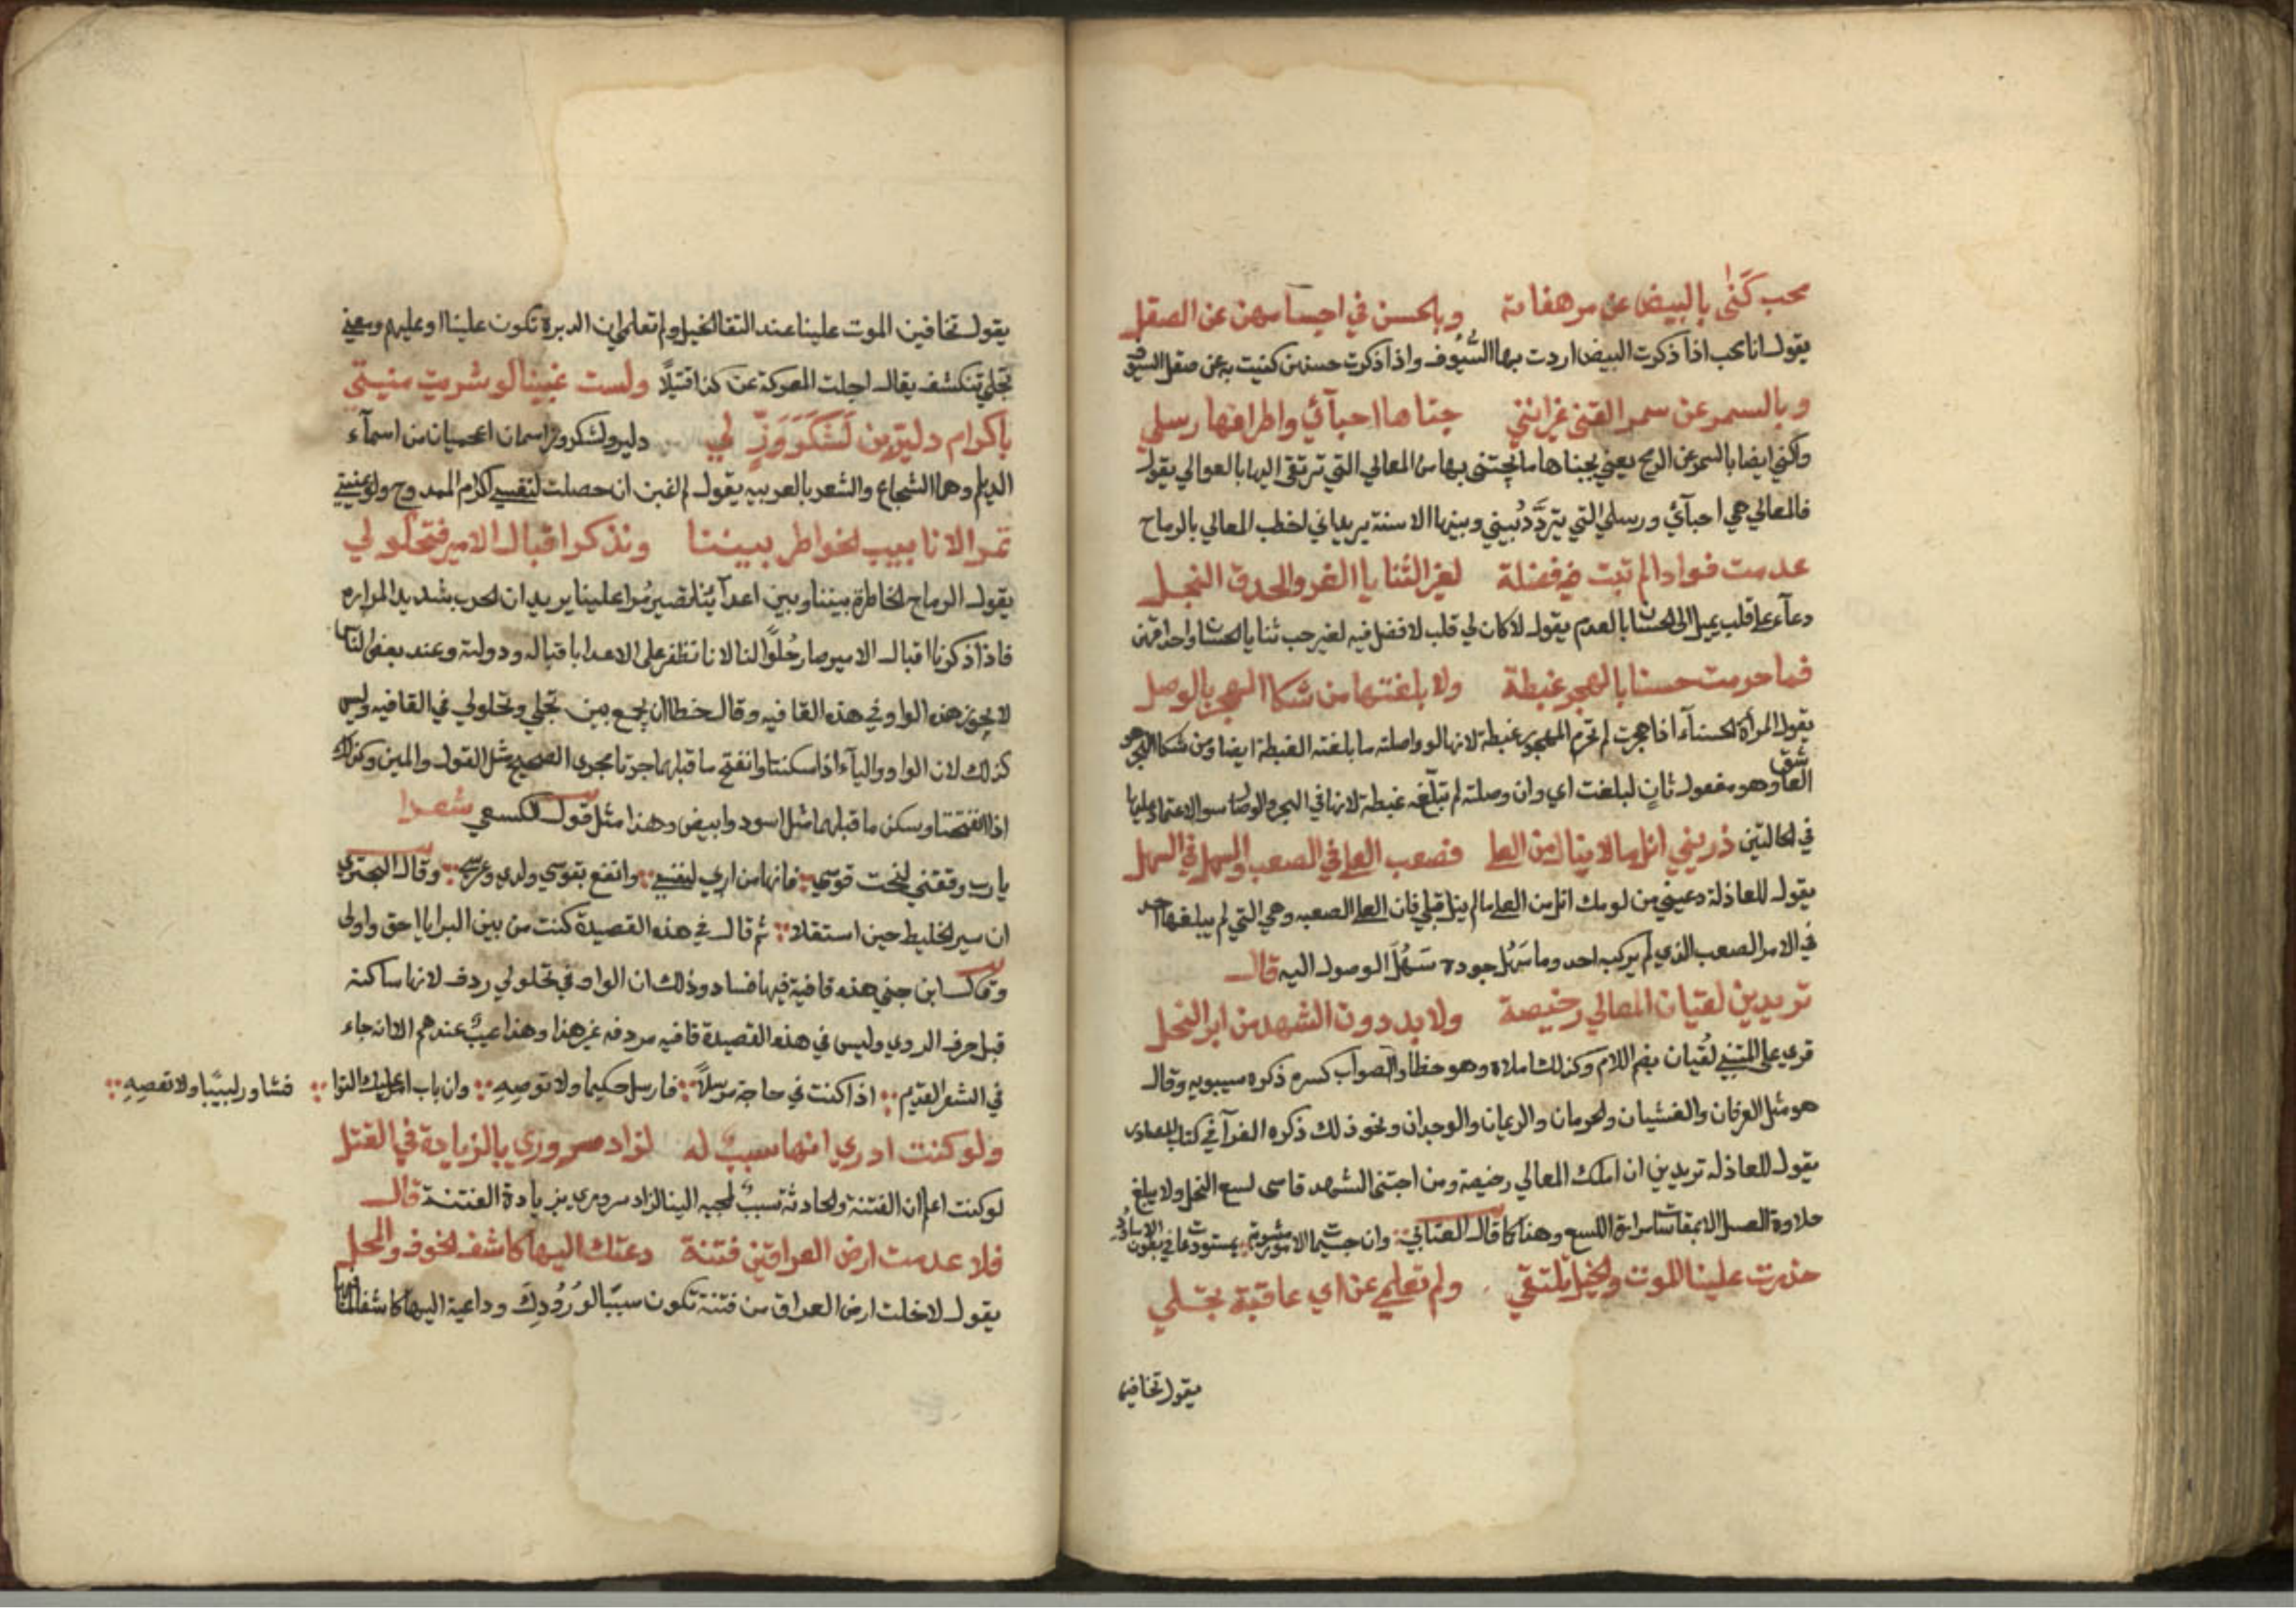 محب كَنٰى بالبيض عن مرهفاته وبالحسن في اجسامهن عن الصقل
يقول انا محب اذا ذكرت البيض اردت بها السُّيُوف واذا ذكرت حسنهن كنيت به عن صقل السيوف
وبالسمر عن سمر القنى غير انني جناها احبآئي واطرافها رسلي
واكني ايضا بالسمر عن الرمح يعني بجناها ما يجتنى بها من المعالي التي ترتقى اليها بالعوالي يقول
فالمعالي هي احبآئي ورسلي التي يتردَّدُ بيني وبينها الاسنة يريد اني اخطب المعالي بالرماح
عدمت فوادا لم تبت فيه فضلة لغير الثنايا الغر والحدق النجل
دعآء على قلب يميل الى الحسان بالعدم يقول لا كان لي قلب لا فضل فيه لغير حب ثنايا الحسان واحداقهن
فما حرمت حسنا بالهجر غبطة ولا بلغتها من شكا الهجر بالوصل
يقول المراة الحسنآء اذا هجرت لم تحرم المهجور غبطة لانها لو واصلته ما بلغته الغبطة ايضا ومن شكا الهجر هو
العاشق وهو مفعول ثانٍ لبلغت اي وان وصلته لم تبلّغه غبطة لانها في الهجر والوصال سوا لاعتماد عليها
في الحالتين ذريني انل ما لا ينال من العلى فصعب العلى في الصعب والسهل في السهل
يقول للعاذلة دعيني من لومك انل من العلى ما لم ينل قبلي فان العلى الصعبه وهي التي لم يبلغها احد
في الامر الصعب الذي لم يركبه احد وما سَهُل وجوده سَهُلَ الوصول اليه قال
تريدين لقيان المعالي رخيصة ولا بد دون الشهد من ابر النحل
قرى على المتنبي لُقيان بضم اللام وكذلك املاه وهو خطا والصواب كسره ذكره سيبويه وقال
هو مثل العرفان والغشيان والحرمان والريمان والوجدان ونحو ذلك ذكره الفرآ في كتاب المصادر
يقول للعاذله تريدين ان املك المعالي رخيصة ومن اجتنى الشهد قاسى لسع النحل ولا يبلغ
حلاوة العسل الا بمقاساة مرارة اللسع وهذا كما قال العتابي وان جسيمات الامور مشوبة بمستودعات في بطون الاساود
حذرت علينا الموت والخيل تلتقي ولم تعلمي عن اي عاقبة تجلي
يقول تخافين
يقول تخافين الموت علينا عند التقا الخيل ولم تعلمي ان الدبرة تكون علينا او عليهم ومعنى
تجلي تنكشف يقال اجلت المعركة عن كذا قتيلًا ولست غبينا لو شريت منيتي
باكرام دلير بن لَشْكَرَوَزٍّ لي دلير ولشكروز اسمان اعجميان من اسمآء
الديلم وهما الشجاع والشعر بالعربيه يقول لم اغبن ان حصلت لنفسي اكرام الممدوح ولو بمنيتي
تمر الانابيب الخواطر بيننا ونذكر اقبال الامير فتحلو لي
يقول الرماح الخاطرة بيننا وبين اعدآئنا تصير مُرا علينا يريد ان الحرب شديد المراره
فاذا ذكرنا اقبال الامير صار حُلوًا لنا لانا نظفر على الاعدا باقباله ودولته وعند بعض الناس
لا يجوز هذه الواو في هذه القافيه وقال خطا ان يجمع بين تجلي وتحلو لي في القافيه وليس
كذلك لان الواو واليآء اذا سكنتا وانفتح ما قبلهما جرتا مجرى الصحيح مثل القول والمين وكذلك
اذا انفتحتا وسكن ما قبلهما مثل اسود وابيض وهذا مثل قول الكسعي شعرا
يا رب وفقني لنحت قوسي فانها من اربي لنفسي وانفع بقوسي ولدي وعرسي وقال البحتري
ان سير الخليط حين استقلا ثم قال في هذه القصيدة كنت من بين البرايا احق واولى
وقال ابن جني هذه قافية فيها فساد وذلك ان الواو في تحلو لي ردف لانها ساكنة
قبل حرف الروي وليس في هذه القصيدة قافيه مردفه غير هذا وهذا عيبٌ عندهم الا انه جاء
في الشعر القديم اذا كنت في حاجة مرسلًا فارسل حكيما ولا توصِهِ وان باب امر عليك التوا فشاور لبيبًا ولا تعصِهِ
ولو كنت ادري انها سببٌ له لزاد سروري بالزيادة في القتل
لو كنت اعلم ان الفتنة والحادثة سببٌ لمجيه الينا لزاد سروري بزيادة الفتنة قال
فلا عدمت ارض العراقين فتنة دعتك اليها كاشف الخوف والمحل
يقول لا خلت ارض العراق من فتنة تكون سببًا لوُرُودِكَ وداعية اليها كاشفا